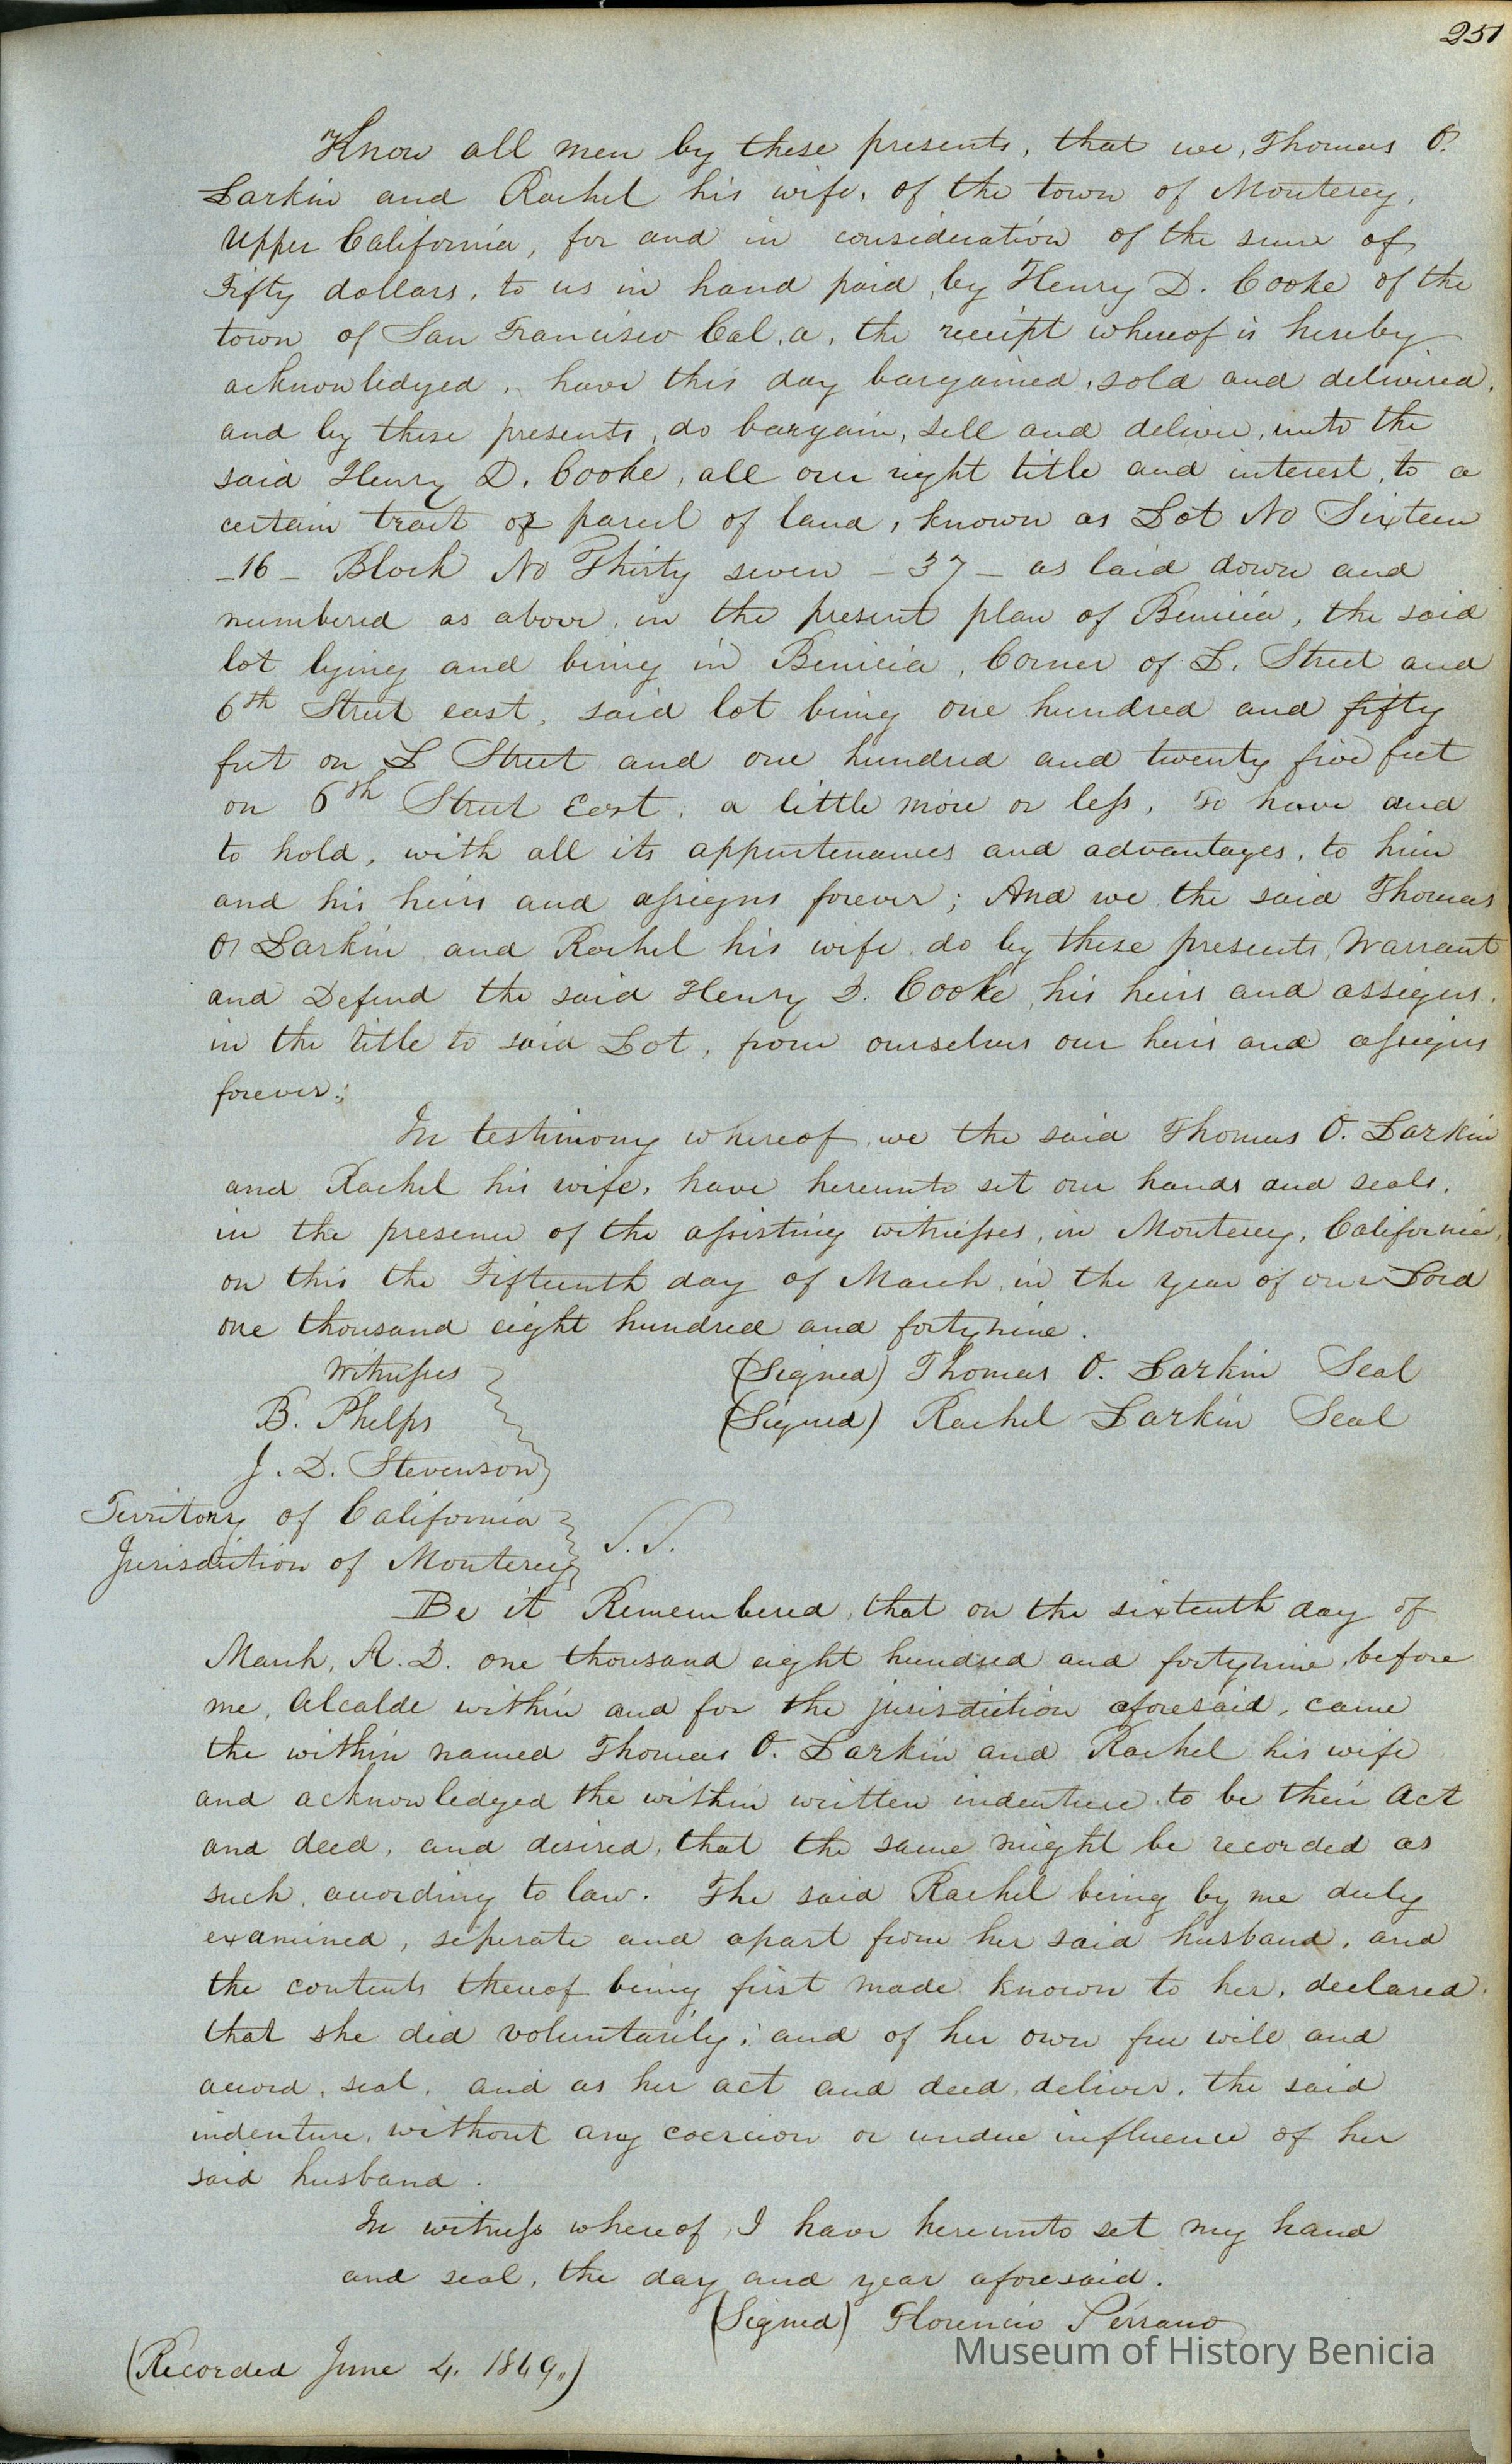 251
Know all men by these presents, that we, Thomas O.
Larkin and Rachel his wife, of the town of Monterey,
Upper California, for and in consideration of the sum of
Fifty dollars, to us in hand paid, by Henry D. Cooke of the
town of San Francisco Cal.a, the receipt whereof is hereby
acknowledged, have this day bargained, sold and delivered,
and by these presents, do bargain, sell and deliver, unto the
said Henry D. Cooke, all our right title and interest, to a
certain tract or parcel of land, known as Lot No Sixteen
-16- Block No Thirty seven -37- as laid down and
numbered as above, in the present plan of Benicia, the said
lot lying and being in Benicia, Corner of L. Street and
6th Street east, said lot being one hundred and fifty
feet on L Street and one hundred and twenty five feet
on 6th Street East, a little more or less, To have and
to hold, with all its appurtenances and advantages, to him
and his heirs and assigns forever; And we the said Thomas
O Larkin and Rachel his wife, do by these presents, Warrant
and Defend the said Henry D. Cooke, his heirs and assigns,
in the title to said Lot, from ourselves our heirs and assigns
forever;
In testimony whereof, we the said Thomas O. Larkin
and Rachel his wife, have hereunto set our hands and seals,
in the presence of the assisting witnesses, in Monterey, California,
on this the Fifteenth day of March, in the year of our Lord
one thousand eight hundred and fortynine.
Witnesses (Signed) Thomas O. Larkin Seal
B. Phelps (Signed) Rachel Larkin Seal
J. D. Stevenson
Territory of California
Jurisdiction of Monterey S.S.
Be it Remembered, that on the sixteenth day of
March, A.D. one thousand eight hundred and fortynine, before
me, Alcalde within and for the jurisdiction aforesaid, came
the within named Thomas O. Larkin and Rachel his wife
and acknowledged the within written indenture to be their Act
and deed, and desired, that the same might be recorded as
such, according to law. The said Rachel being by me duly
examined, seperate and apart from her said husband, and
the contents thereof being first made known to her, declared,
that she did voluntarily; and of her own free will and
accord, seal, and as her act and deed, deliver, the said
indenture, without any coercion or undue influence of her
said husband.
In witness whereof, I have hereunto set my hand
and seal, the day and year aforesaid.
(Signed) Florencio Serrano
(Recorded June 4. 1849.,)
Museum of History Benicia